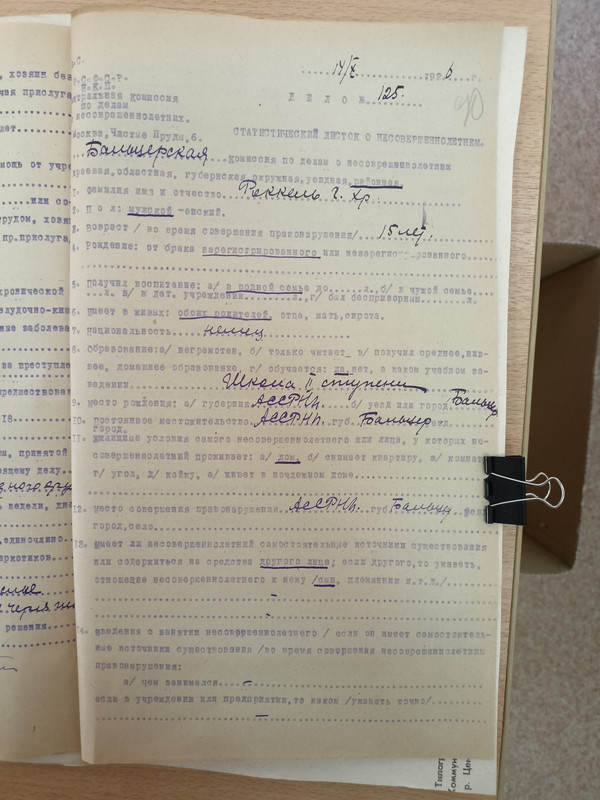 , хозяин без
чая прислуга
дет.
мощь от учре
или со
трудом, хозя
пр.прислуга,
хронической
елудочно-киш
ные заболева
за преступле
предшествовал
18.
ом, принятой
ящему делу.
в недели, дне
,единолично.
аркотиков.
решения.
Р.С.Ф.С.Р.
Н.К.П.
нтральная Комиссия
по делам
несовершеннолетних.
осква, Чистые Пруды, 6.
14/X 1926 г.
ДЕЛО № 125.
90
СТАТИСТИЧЕСКИЙ ЛИСТОК О НЕСОВЕРШЕННОЛЕТНЕМ.
Бальцерская Комиссия по делам о несовершеннолетних
краевая, областная, губернская окружная, уездная, районная.
1. фамилия имя и отчество Роккель Г. Хр.
2. Пол: мужской женский.
3. возраст / во время совершения правонарушения/ 15 лет.
4. рождение: от брака зарегистрированного или незарегистрированного
5. Получил воспитание: а/ в полной семье до л., б/ в чужой семье
л. в/ в дет. учреждении л., г/ был беспризорным л.
6. имеет в живых: обоих родителей, отца, мать, сирота.
7. национальность немец
8. образование: а/ неграмотен, б/ только читает в/ получил среднее, низ-
шее, домашнее образование, г/ обучается: да, нет, в каком учебном за-
ведении Школа II ступени
9. место рождения: а/ губерния АССРНП. б/ уезд или город Бальцер
10. постоянное местожительство АССРНП. губ. Бальцер уезд
город
11. жилищные условия самого несовершеннолетнего или лица, у которых не-
совершеннолетний проживает: а/ дом, б/ снимает квартиру, в/ комнату
г/ угол, д/ койку, е/ живет в ночлежном доме
12. место совершения правонарушения АССРНП. губ. Бальцер уезд
город, село
13. имеет ли несовершеннолетний самостоятельные источники существования
или содержится на средства другого лица; если другого, то указать,
отношение несовершеннолетнего к нему /сын, племянник и.т.д./
14. сведения о занятии несовершеннолетнего / если он имеет самостоятель-
ные источники существования /во время совершения несовершеннолетним
правонарушения:
а/ чем занимался
если в учреждении или предприятии, то каком /указать точно/
Типогр
Коммун
р. Цен